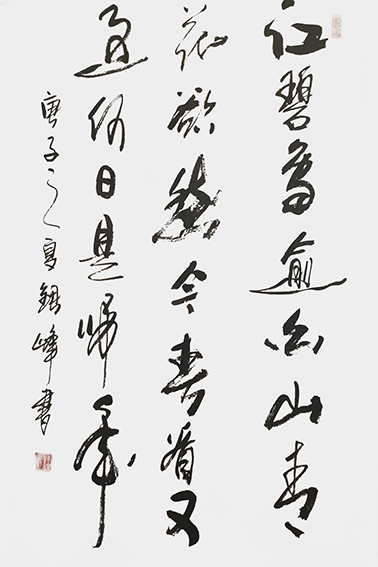 江碧鳥逾白山青
花欲燃今春看又
過何日是歸年
庚子之夏峰書